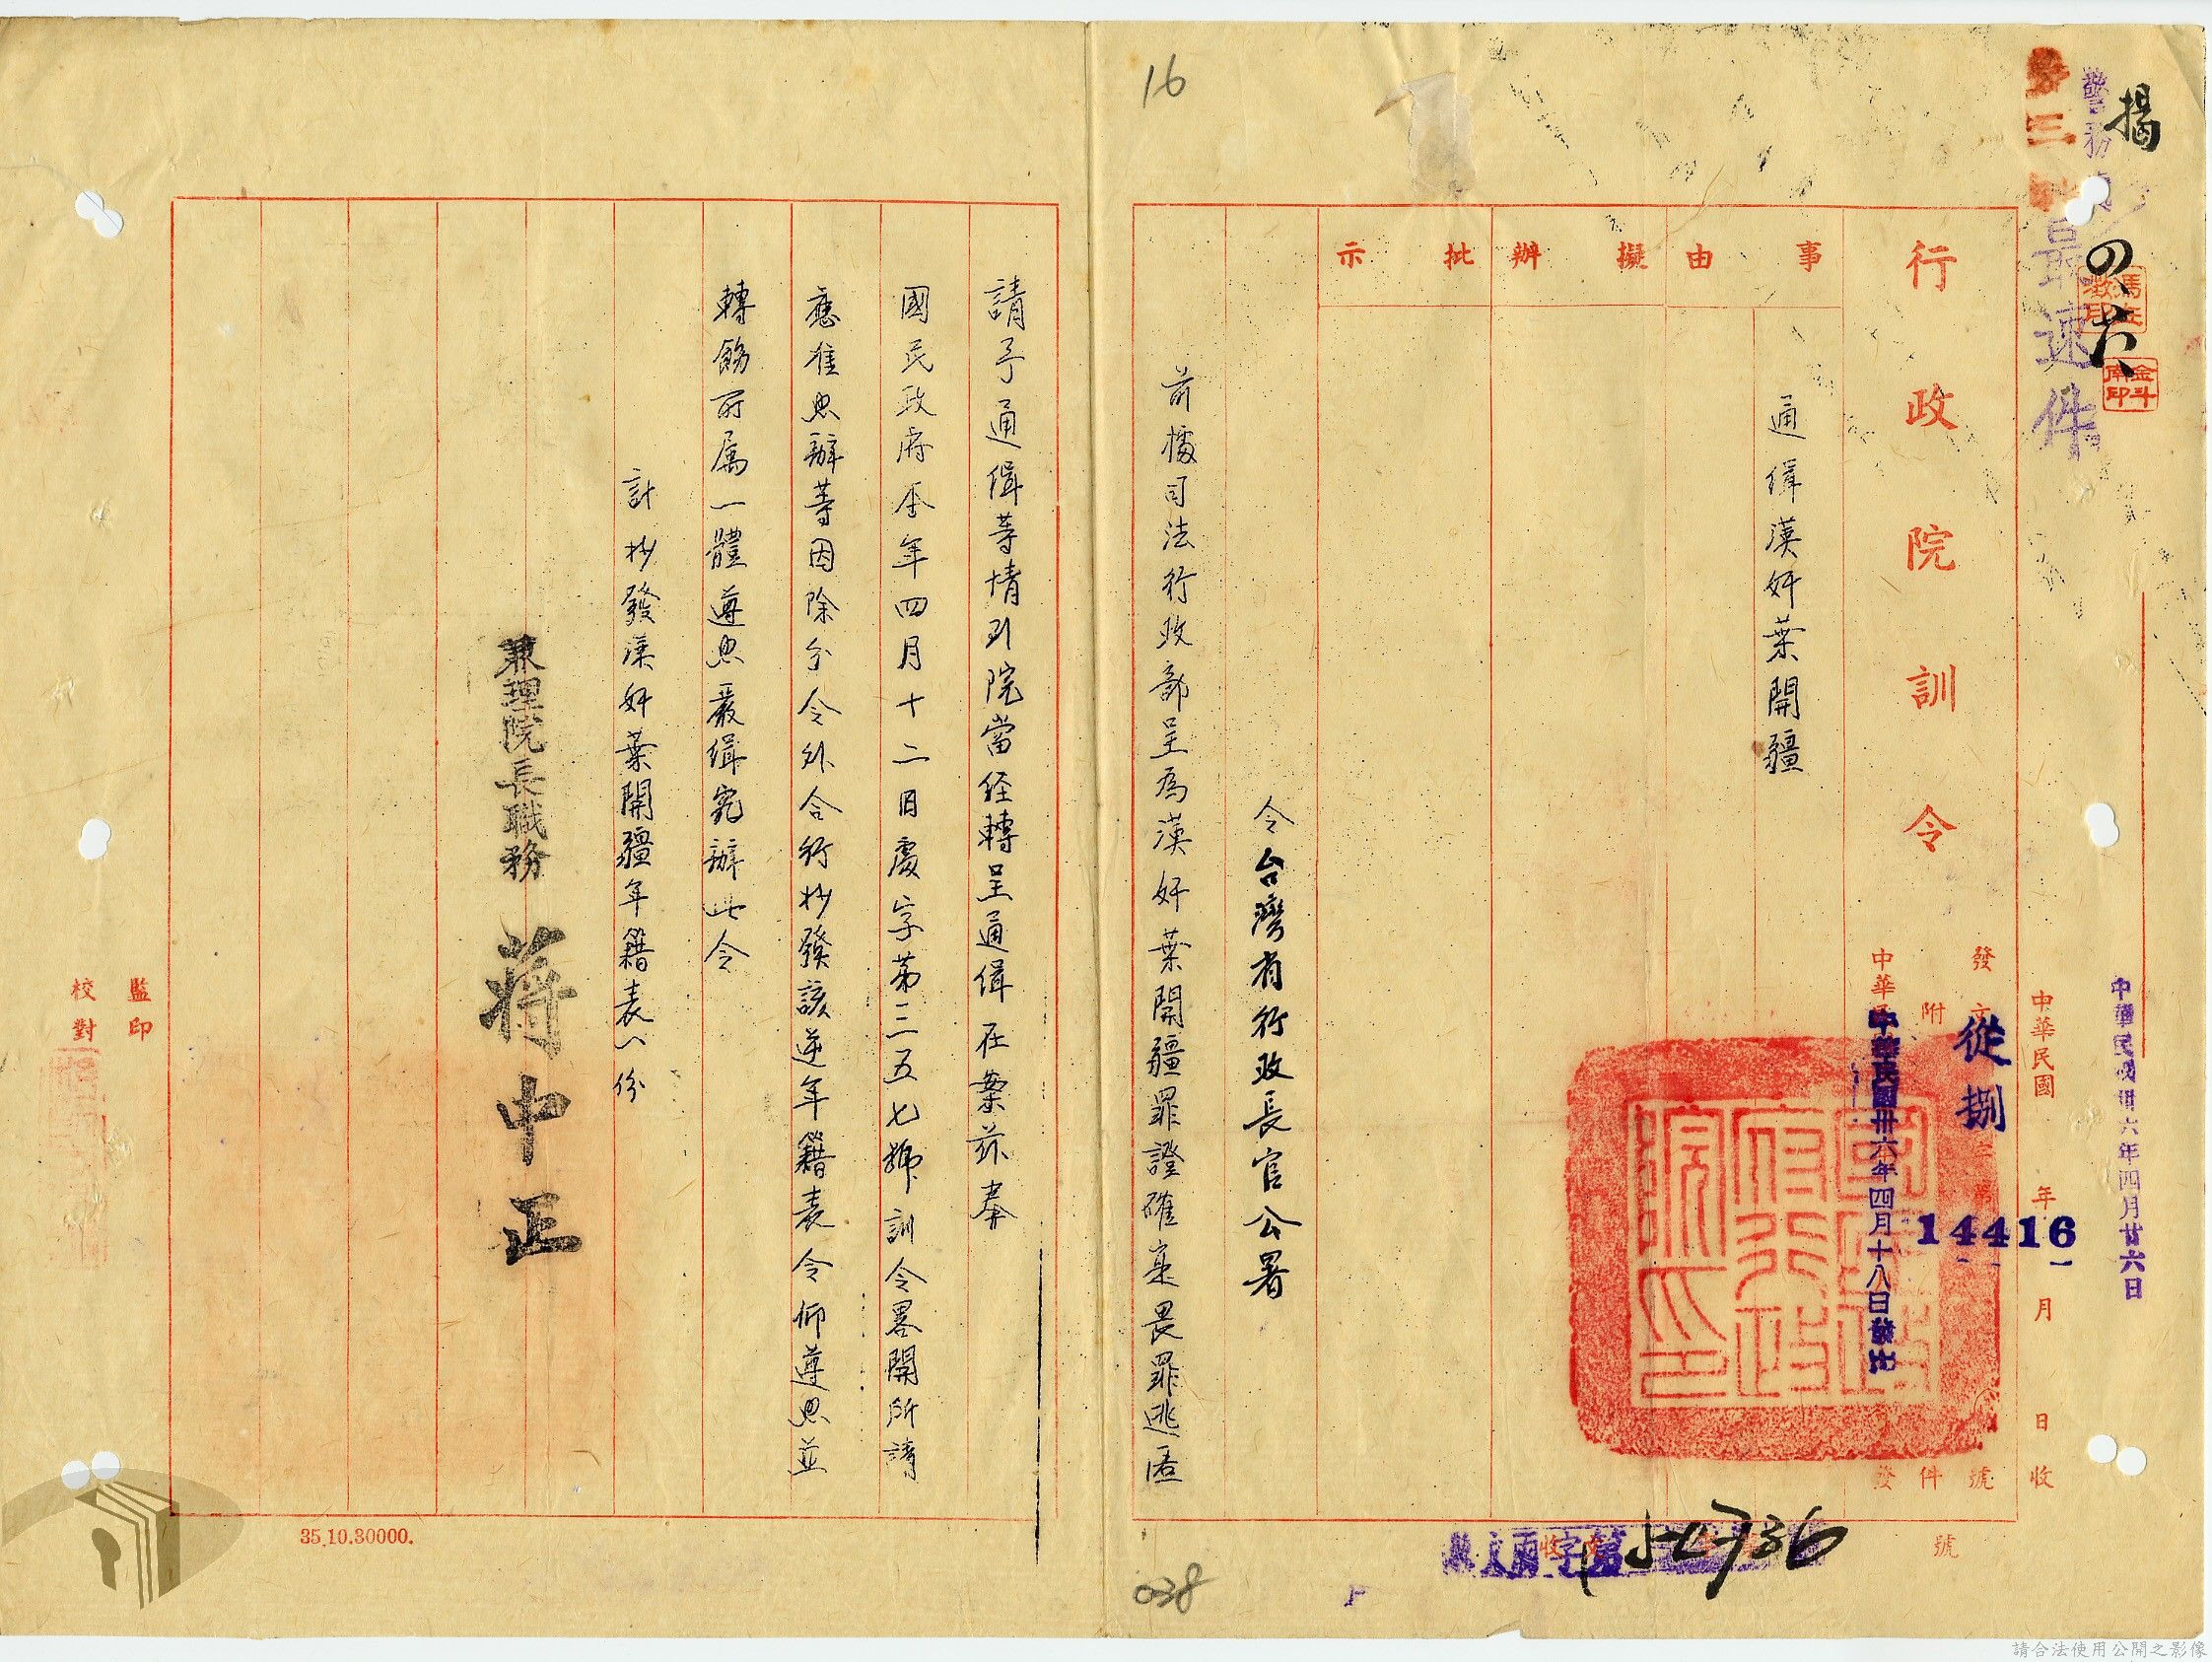 揭
四、六、
警務
最速件
中華民國卅六年四月廿六日
中華民國 年 月 日收
號
行政院訓令
發文
從捌
第
14416
號
附 件
中華民國卅六年四月十八日發出
事由
通緝漢奸葉開疆
擬辦
批示
令台灣省行政長官公署
前據司法行政部呈為漢奸葉開疆罪證確寔畏罪逃匿
請予通緝等情到院當經轉呈通緝在案茲奉
國民政府本年四月十二日處字第三五七號訓令畧開所請
應准照辦等因除分令外合行抄發該逆年籍表令仰遵照並
轉飭所屬一體遵照嚴緝究辦此令
計抄發漢奸葉開疆年籍表一份
兼理院長職務 蔣中正
監印
校對
35.10.30000.
16
038
請合法使用公開之影像